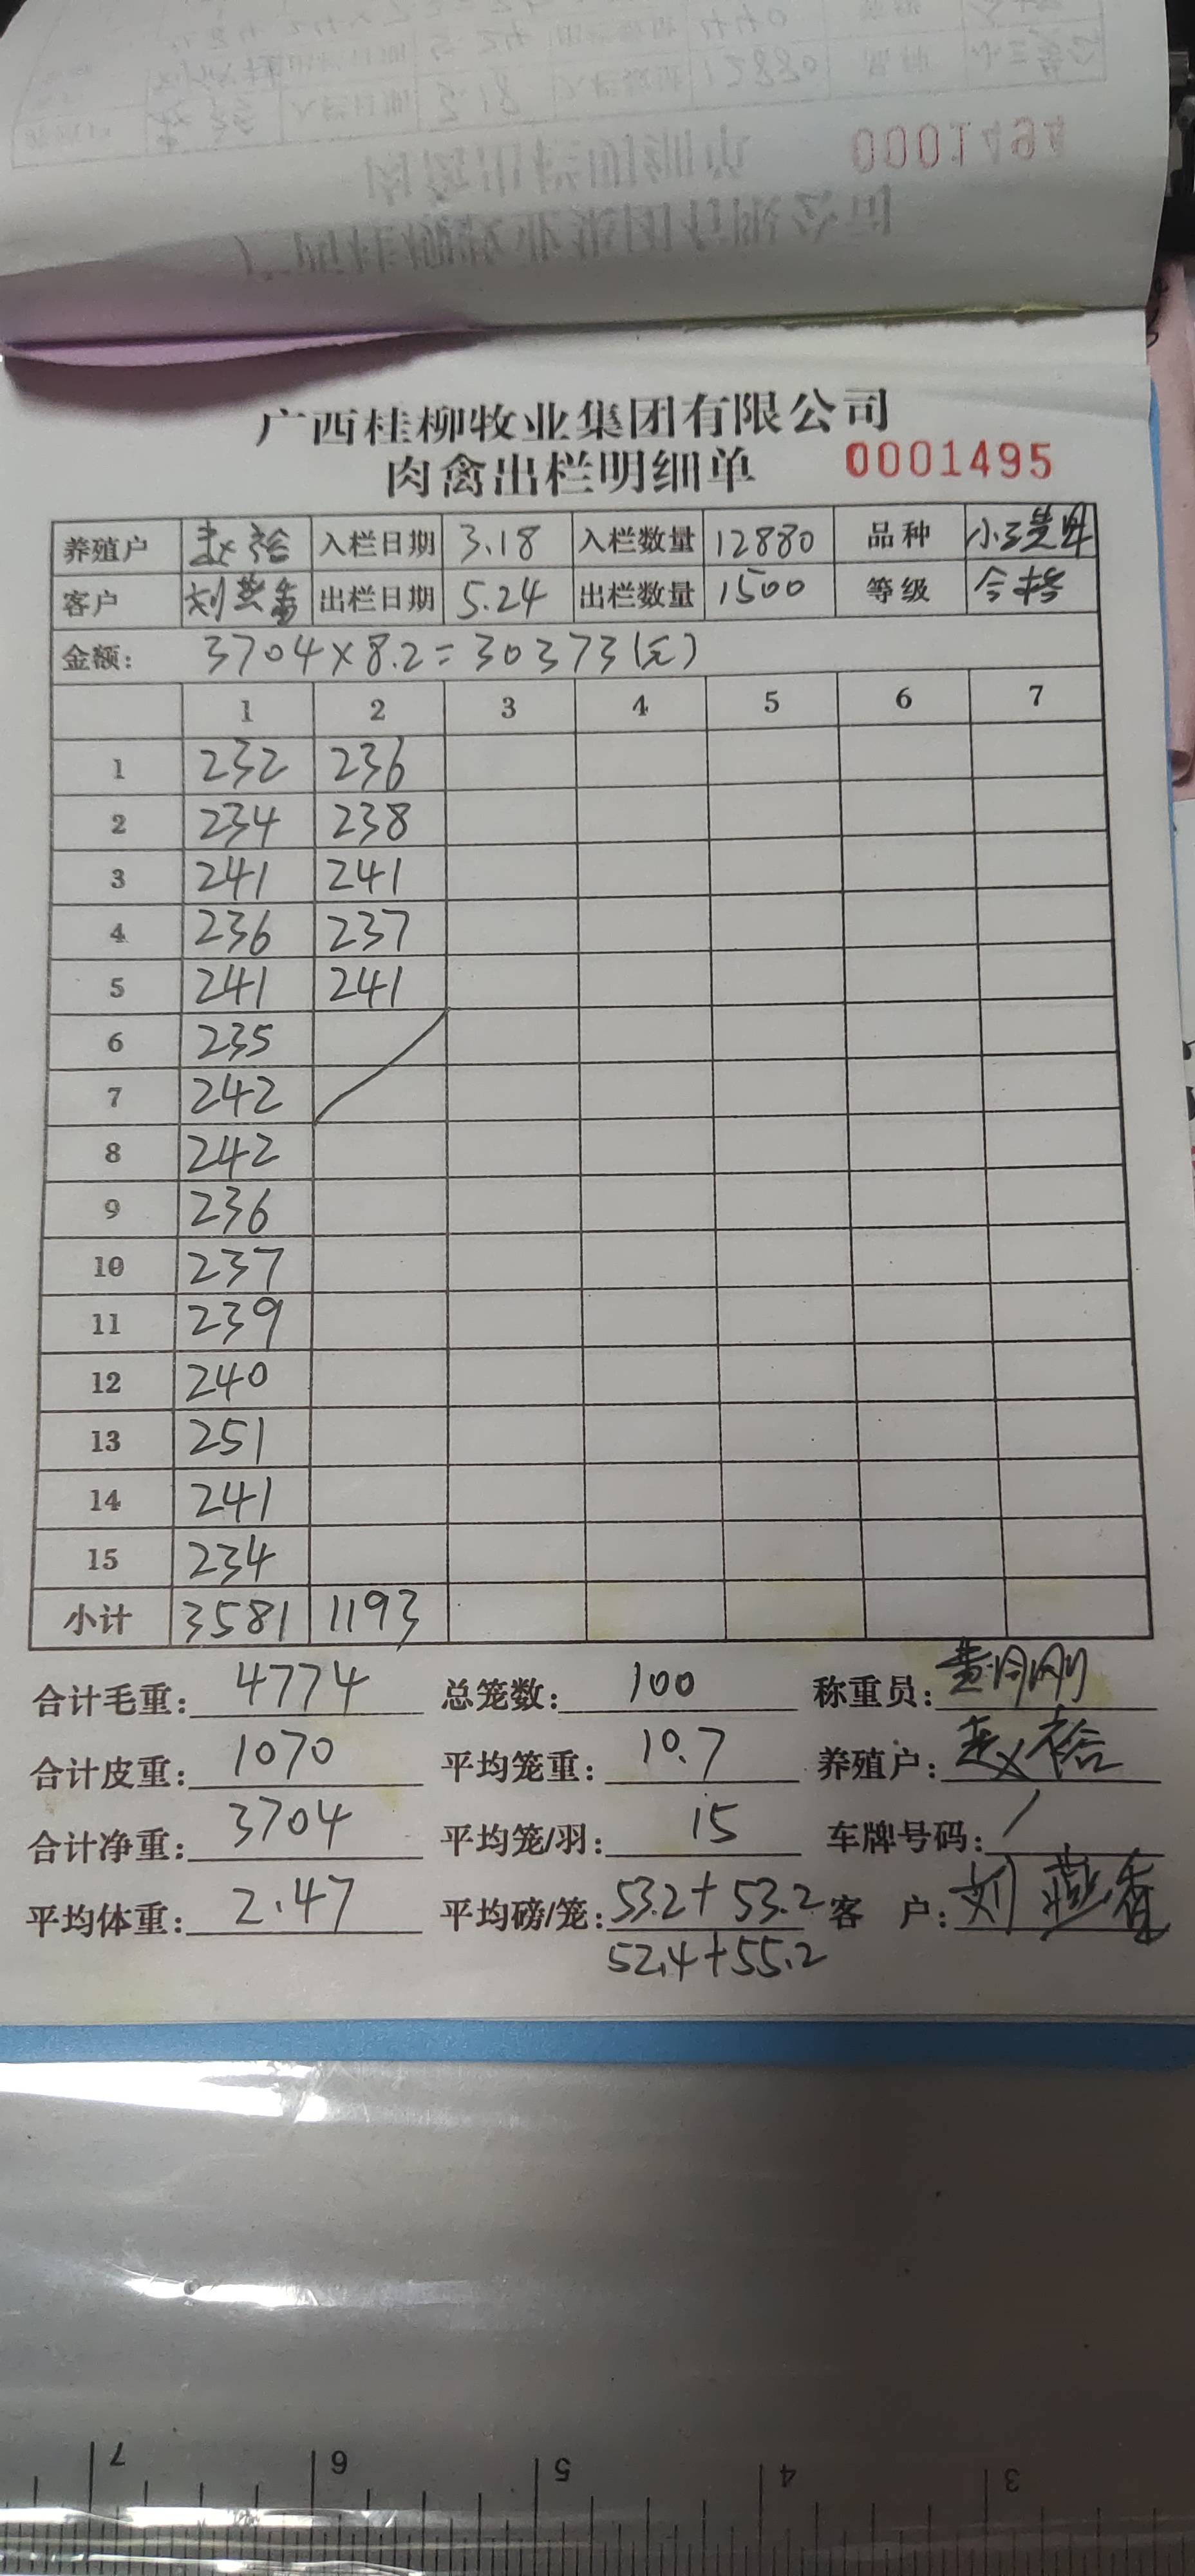 0001494
广西桂柳牧业集团有限公司
肉禽出栏明细单 0001495
养殖户 赵裕 入栏日期 3.18 入栏数量 12880 品种
客户 刘燕香 出栏日期 5.24 出栏数量 1500 等级 合格
金额: 3704×8.2=30373(元)
1 2 3 4 5 6 7
1 232 236
2 234 238
3 241 241
4 236 237
5 241 241
6 235
7 242
8 242
9 236
10 237
11 239
12 240
13 251
14 241
15 234
小计 3581 1193
合计毛重: 4774 总笼数: 100 称重员:
合计皮重: 1070 平均笼重: 10.7 养殖户: 赵裕
合计净重: 3704 平均笼/羽: 15 车牌号码: /
平均体重: 2.47 平均磅/笼: 53.2+53.2 客 户: 刘燕香
52.4+55.2
7 6 5 4 3